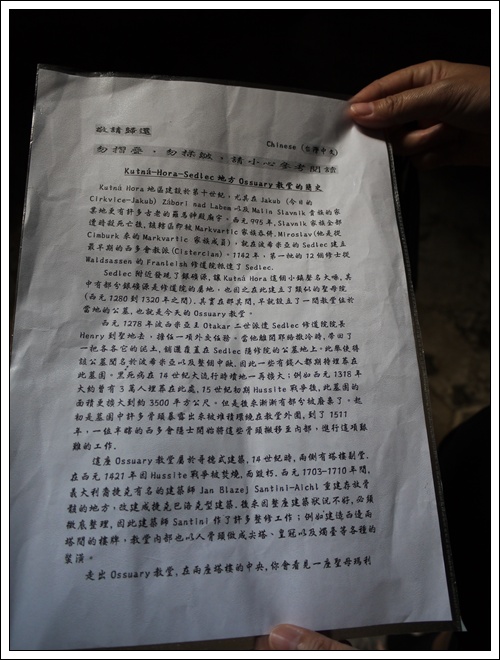 敬請歸還
Chinese (台灣中文)
勿摺疊，勿採皺，請小心參考閱讀
Kutná-Hora-Sedlec 地方 Ossuary 教堂的歷史
Kutná Hora 地區建設於第十世紀，尤其在 Jakub (今日的
Církvice-Jakub) Záboří nad Labem 以及 Malin Slavník 貴族的家
業地是有許多古老的羅馬神殿廟宇。西元 995 年，Slavník 家族全部
遭時殺死亡後，該轄區即被 Markvartic 家族吞併，Miroslav(他是從
Cimburk 來的 Markvartic 家族成員)，就在波希米亞的 Sedlec 建立
最早期的西多會教派(Cistercian)。1142 年，第一批的 12 個修士從
Waldsassen 的 Franleish 修道院抵達了 Sedlec。
Sedlec 附近發現了銀礦源，讓 Kutná Hora 這個小鎮聲名大噪，其
中有部份銀礦源是修道院的屬地，也因之在此建立了類似的聖母院
(西元 1280 到 1320 年之間)，其實在那其間，早就設立了一間教堂位於
當地的公墓，也就是今天的 Ossuary 教堂。
西元 1278 年波西米亞王 Otakar 二世派遣 Sedlec 修道院院長
Henry 到聖地去，擔任一項外交任務。當他離開耶路撒冷時，帶回了
一把各各它的泥土，鋪灑覆蓋在 Sedlec 隱修院的公墓地上。此舉使得
該公墓聞名於波希米亞以及整個中歐，因此一些有錢人都期待埋葬在
此墓園。黑死病在 14 世紀大流行時墳地一再擴大；例如西元 1318 年
大約曾有 3 萬人埋葬在此處，15 世紀初期 Hussite 戰爭後，此墓園的
面積是擴大到約 3500 平方公尺。但是後來漸漸有部分被廢棄了。起
初是墓園中許多骨頭暴露出來被堆積環繞在教堂外圍，到了 1511
年，一位半瞎的西多會隱士開始將這些骨頭搬移至內部，進行這項艱
難的工作.
這座 Ossuary 教堂屬於哥德式建築，14 世紀時，兩側有塔樓副堂.
在西元 1421 年因 Hussite 戰爭被焚燒，而毀朽. 西元 1703-1710 年間，
義大利裔捷克有名的建築師 Jan Blazej Santini-Aichl 重建存放骨
骸的地方，改建成捷克巴洛克型建築. 後來因整座建築狀況不好，必須
徹底整理，因此建築師 Santini 作了許多整修工作；例如建造西邊兩
塔間的樓牌，教堂內部也以人骨頭做成安塔、皇冠以及燭臺等各種的
裝潢。
走出 Ossuary 教堂，在兩座塔樓的中央，你會看見一座聖母瑪利